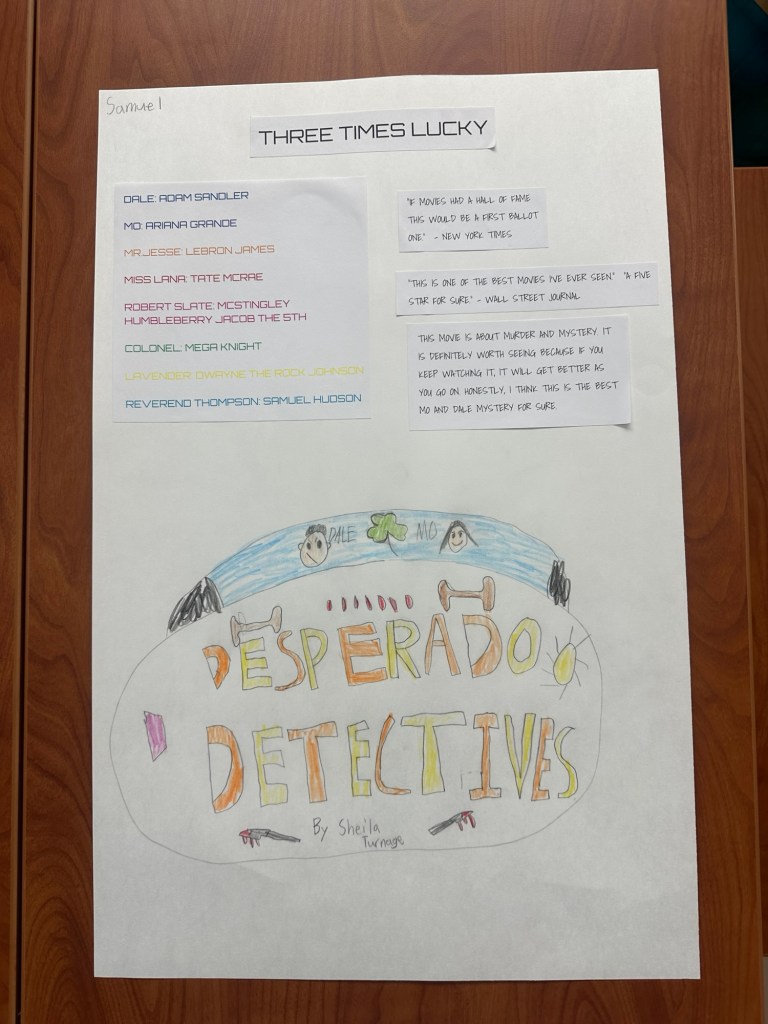 Samuel
THREE TIMES LUCKY
DALE: ADAM SANDLER
MO: ARIANA GRANDE
MR.JESSE: LEBRON JAMES
MISS LANA: TATE MCRAE
ROBERT SLATE: MCSTINGLEY
HUMBLEBERRY JACOB THE 5TH
COLONEL: MEGA KNIGHT
LAVENDER: DWAYNE THE ROCK JOHNSON
REVEREND THOMPSON: SAMUEL HUDSON
"IF MOVIES HAD A HALL OF FAME
THIS WOULD BE A FIRST BALLOT
ONE." - NEW YORK TIMES
"THIS IS ONE OF THE BEST MOVIES I'VE EVER SEEN." "A FIVE
STAR FOR SURE." - WALL STREET JOURNAL
THIS MOVIE IS ABOUT MURDER AND MYSTERY. IT
IS DEFINITELY WORTH SEEING BECAUSE IF YOU
KEEP WATCHING IT, IT WILL GET BETTER AS
YOU GO ON. HONESTLY, I THINK THIS IS THE BEST
MO AND DALE MYSTERY FOR SURE.
DALE MO
DESPERADO
DETECTIVES
By Sheila
Turnage